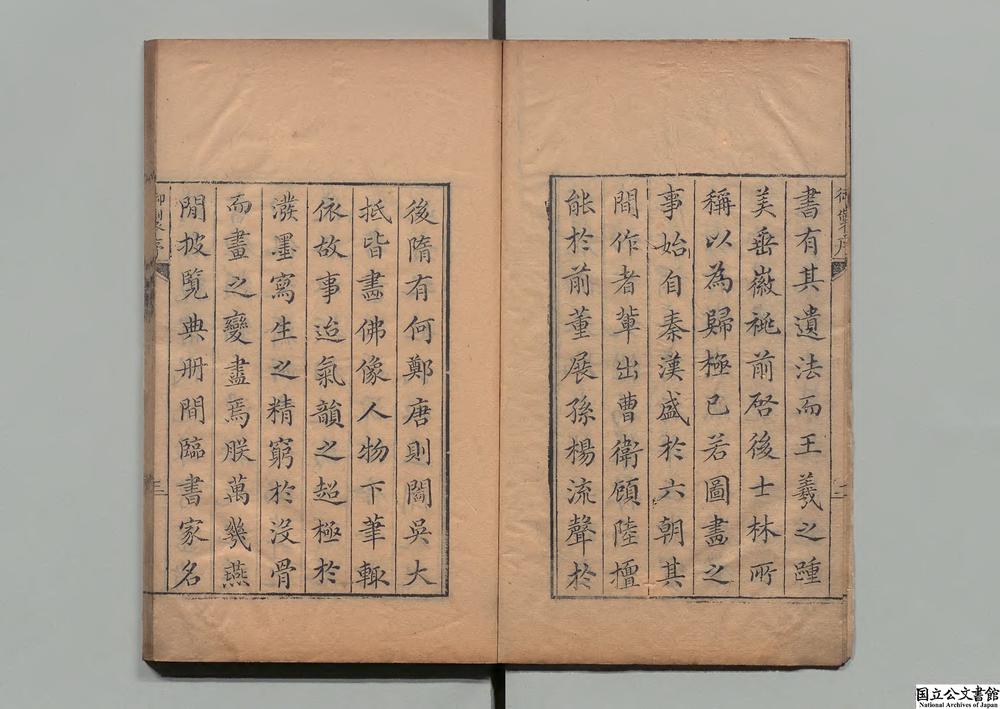 書有其遺法而王羲之踵
美垂徽祧前啓後士林所
稱以為歸極已若圖畫之
事始自秦漢盛於六朝其
間作者輩出曹衛顧陸擅
能於前董展孫楊流聲於
御製序
二
後隋有何鄭唐則閻吳大
抵皆畫佛像人物下筆輙
依故事迨氣韻之超極於
潑墨寫生之精窮於沒骨
而畫之變盡焉朕萬幾燕
閒披覽典册間臨書家名
御製序
三
国立公文書館
National Archives of Japan